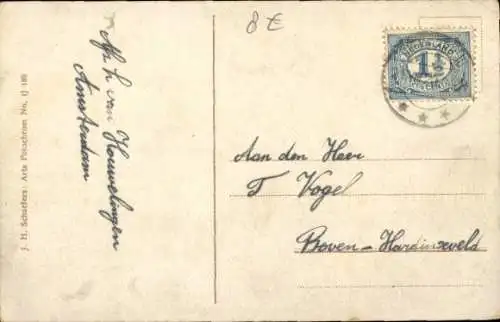 8 €
NEDERLAND
1½
CENT
Afz h van Houwelingen
Amsterdam
Aan den Heer
T Vogel
Boven-Hardinxveld
J. H. Schaefers: Arts Potochrom No. IJ 189